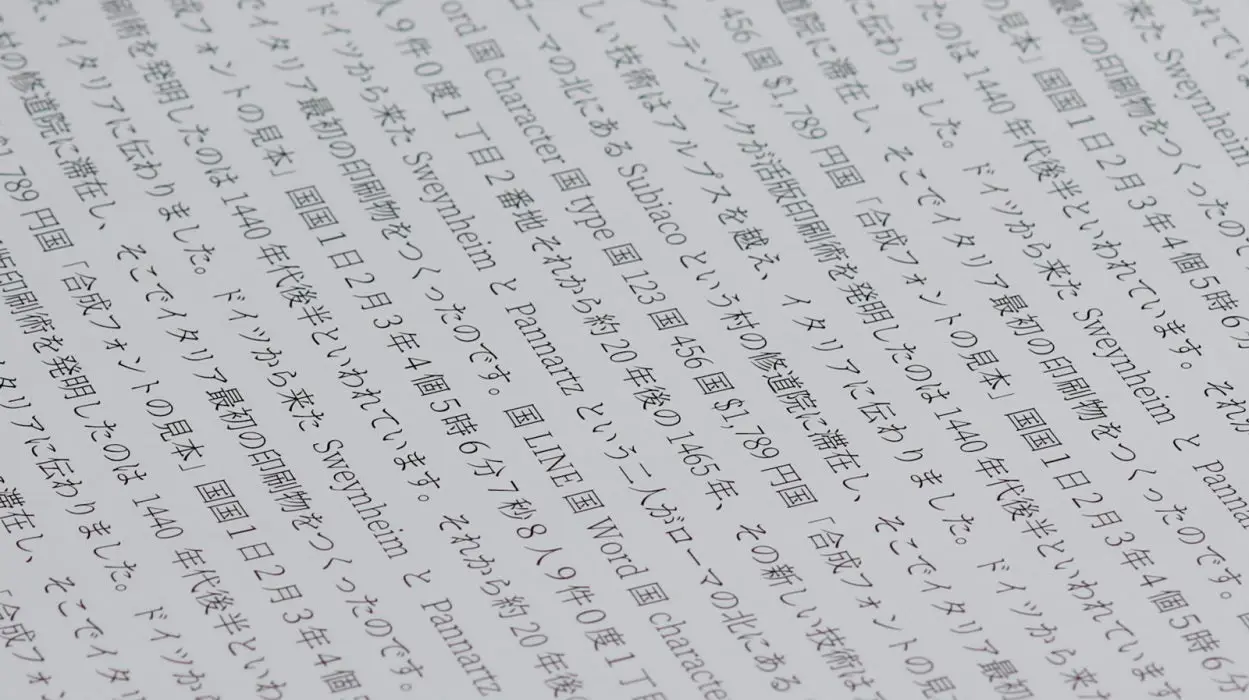 われてい
来た Sweynheim
最初の印刷物をつくったので
の見本」国国1日2月3年4個5時6分
たのは 1440 年代後半といわれています。それが
に伝わりました。ドイツから来た Sweynheim と Panna
道院に滞在し、そこでイタリア最初の印刷物をつくったのです。
456 国 $1,789 円国「合成フォントの見本」国国1日2月3年4個5時6分
グーテンベルクが活版印刷術を発明したのは 1440 年代後半といわれていま
しい技術はアルプスを越え、イタリアに伝わりました。ドイツから来
ローマの北にある Subiaco という村の修道院に滞在し、そこでイタリア最初
ord 国 character 国 type 国 123 国 456 国 $1,789 円国「合成フォントの見
人9件0度1丁目2番地それから約20年後の1465年、その新しい技術は
ドイツから来た Sweynheim と Pannartz という二人がローマの北にある
でイタリア最初の印刷物をつくったのです。国 LINE 国 Word 国 characte
成フォントの見本」国国1日2月3年4個5時6分7秒8人9件0度1丁目
刷術を発明したのは 1440 年代後半といわれています。それから約20年後
え、イタリアに伝わりました。ドイツから来た Sweynheim と Pannartz
村の修道院に滞在し、そこでイタリア最初の印刷物をつくったのです。
$1,789 円国「合成フォントの見本」国国1日2月3年4個
版印刷術を発明したのは 1440 年代後半といわ
タリアに伝わりました。ドイツから
滞在し、そこでイタリ
合成フォン